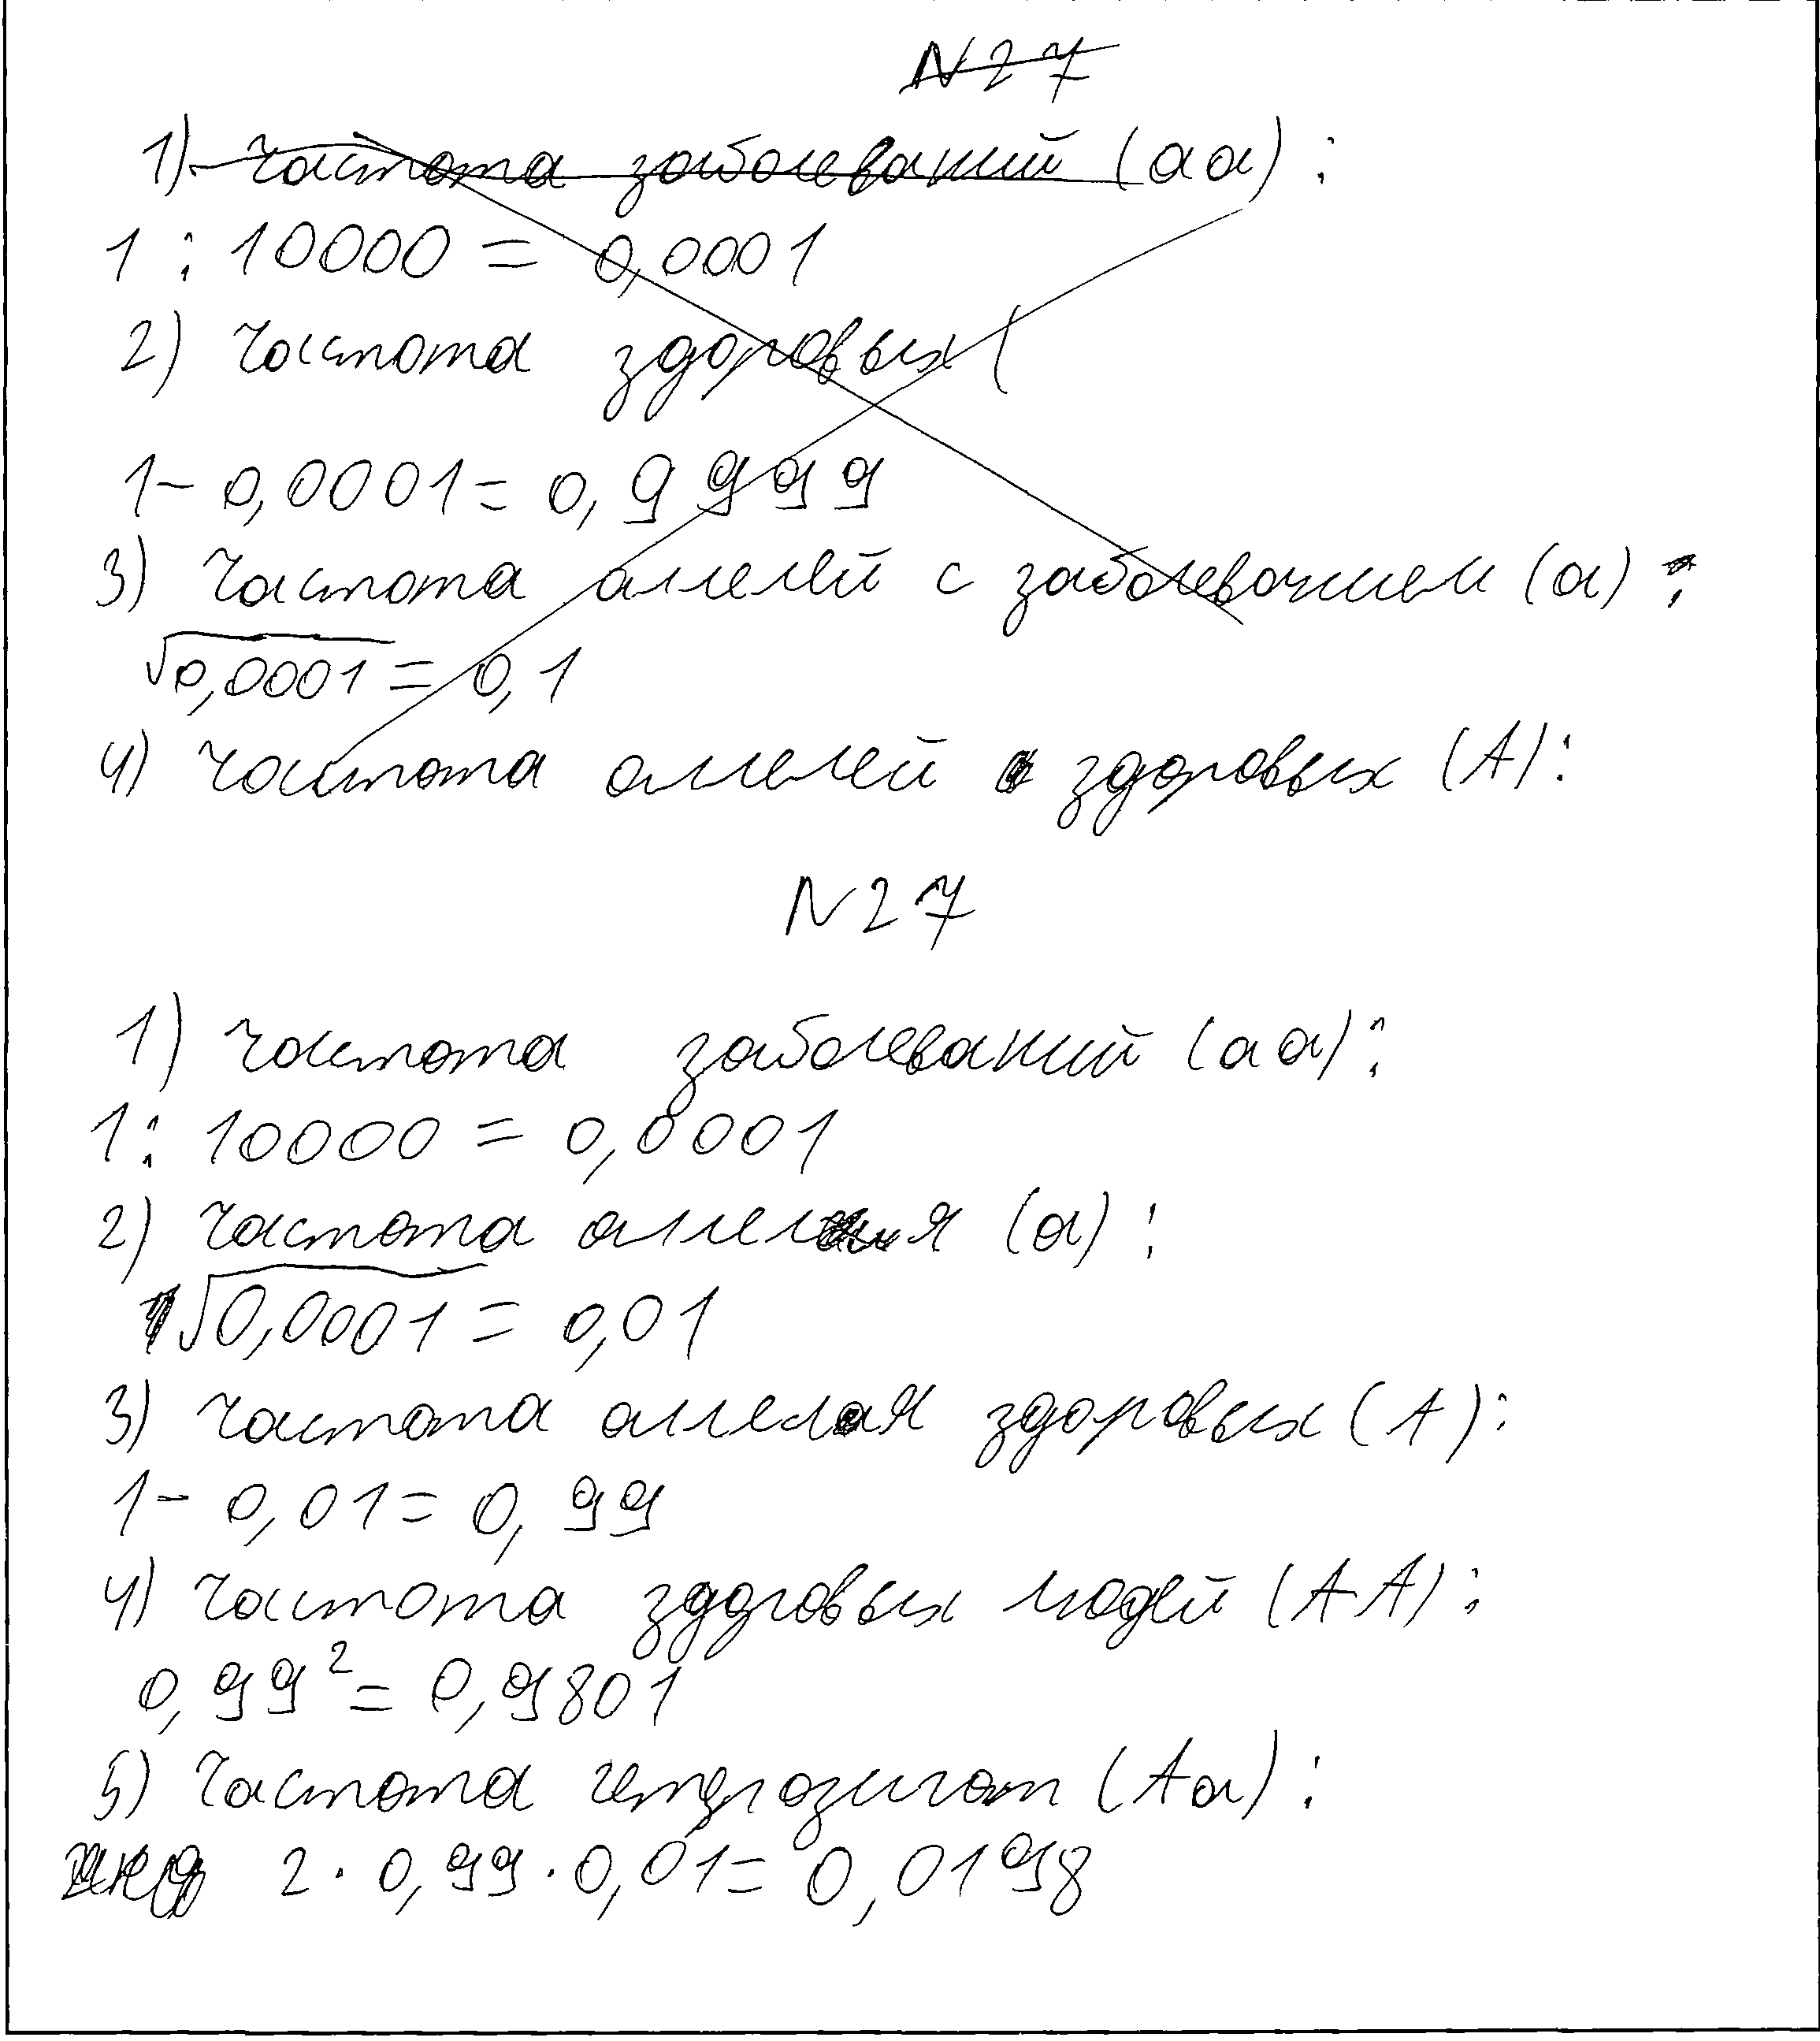 N27
1) частота заболеваний (аа):
1 : 10000 = 0,0001
2) частота здоровых (
1 - 0,0001 = 0,9999
3) частота аллелей с заболеванием (а):
√0,0001 = 0,1
4) частота аллелей здоровых (А):
N27
1) частота заболеваний (аа):
1 : 10000 = 0,0001
2) частота аллеля (а):
√0,0001 = 0,01
3) частота аллеля здоровых (А):
1 - 0,01 = 0,99
4) частота здоровых людей (АА):
0,99² = 0,9801
5) частота гетерозигот (Аа):
2 · 0,99 · 0,01 = 0,0198